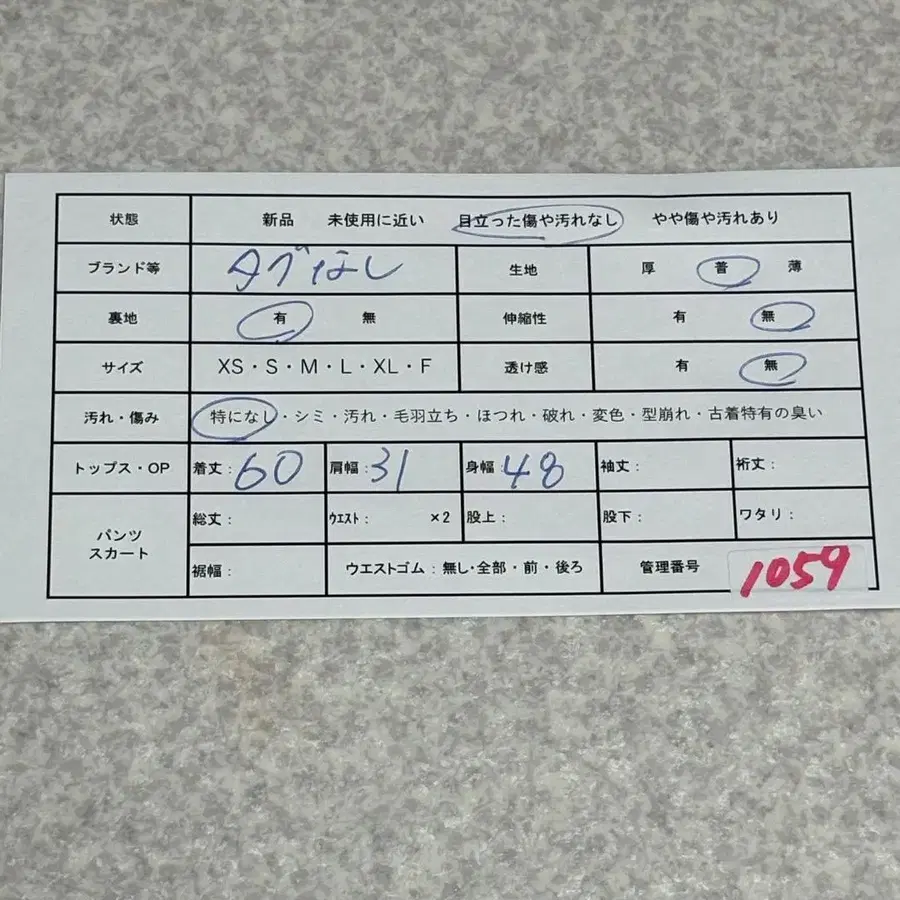 状態 新品 未使用に近い 目立った傷や汚れなし やや傷や汚れあり
ブランド等 タグなし 生地 厚 普 薄
裏地 有 無 伸縮性 有 無
サイズ XS・S・M・L・XL・F 透け感 有 無
汚れ・傷み 特になし・シミ・汚れ・毛羽立ち・ほつれ・破れ・変色・型崩れ・古着特有の臭い
トップス・OP 着丈：60 肩幅：31 身幅：48 袖丈： 裄丈：
パンツ
スカート
総丈： ｳｴｽﾄ： ×2 股上： 股下： ワタリ：
裾幅： ウエストゴム：無し・全部・前・後ろ 管理番号 1059